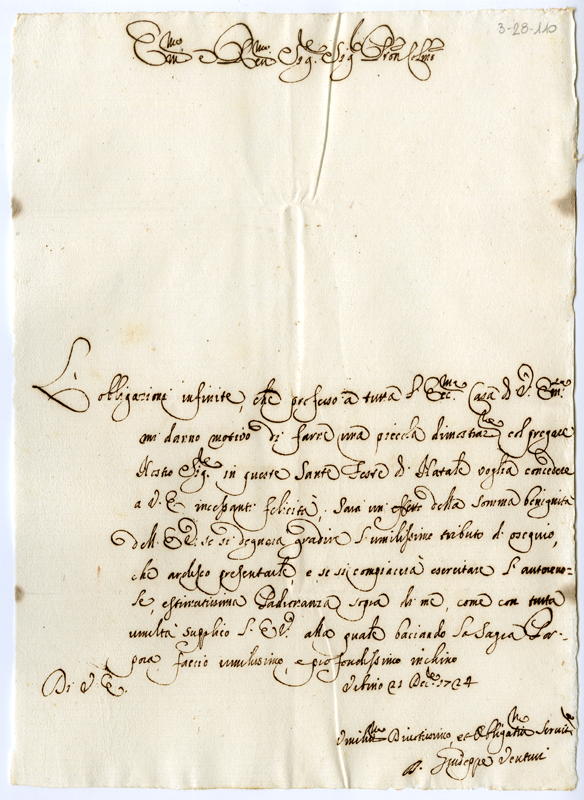 3-28-110
Em.mo e Rev.mo Sig.re Sig.r Pron Colmo
L'obligazioni infinite, che professo a tutta l'Ecc.ma Casa di V. Em.
mi danno motivo di farne una piccola dimostraz.ne col pregare
Nostro Sig.re in queste Sante Feste di Natale voglia concedere
a V. E. incessanti felicità. Sarà un effetto della somma benignità
dell'E.V. se si degnerà gradire l'umilissimo tributo d'ossequio,
che ardisco presentarle, e se si compiacerà esercitare l'autorevo-
le, estimatissima Padronanza sopra di me, come con tutta
umiltà supplico l'E.V. alla quale baciando la Sagra Por-
pora faccio umilissimo, e profondissimo inchino
Di V. E.
Urbino 21 Dec.re 1724
Umiliss.mo Divotissimo, et Obligatis.mo Servit.e
Giuseppe Venturi